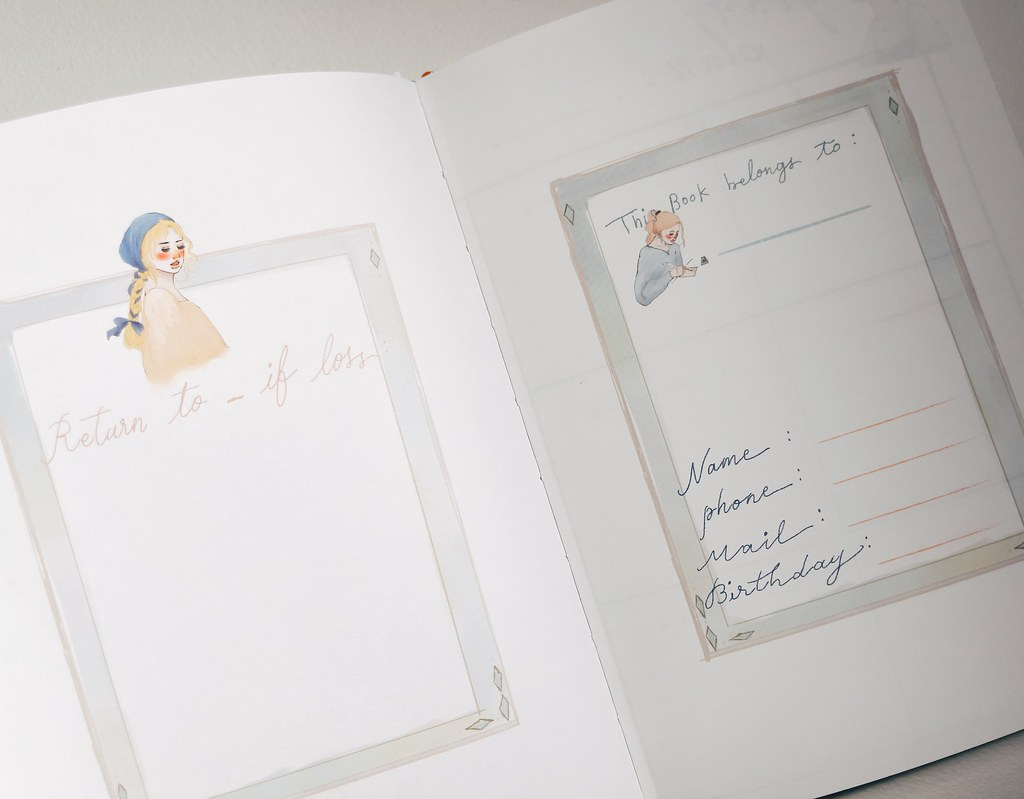 Return to - if loss
This Book belongs to :
Name :
phone :
Mail :
Birthday :